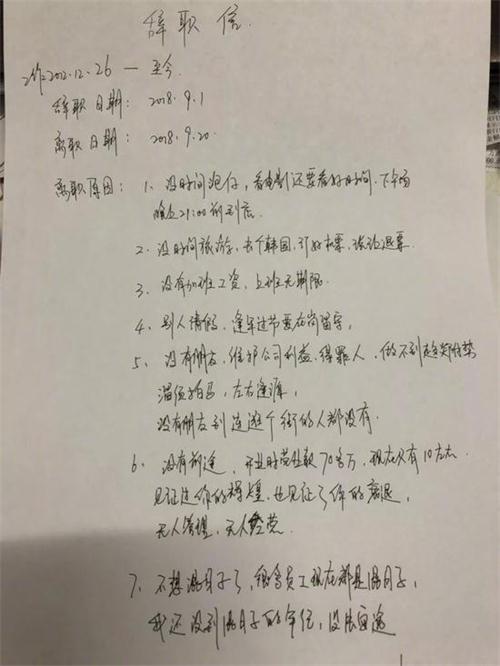 辞职信
工作2012.12.26 — 至今
辞职日期: 2018.9.1
离职日期: 2018.9.20.
离职原因: 1、没时间泡仔,看电影还要看好时间.下午场
晚上21:00前到店.
2、没时间旅游,去个韩国,订好机票,被迫退票.
3、没有加班工资,上班无期限.
4、别人请假,逢年过节要在岗留守,
5、没有朋友,维护公司利益、得罪人,做不到趋炎附势
溜须拍马,左右逢源,
没有朋友到连逛个街的人都没有.
6、没有前途,开业时营业款70多万,现在只有10左右.
见证过你的辉煌,也见证了你的衰退,
无人管理,无人经营.
7、不想混日子了,很多员工现在都是混日子,
我还没到混日子的年纪,没法